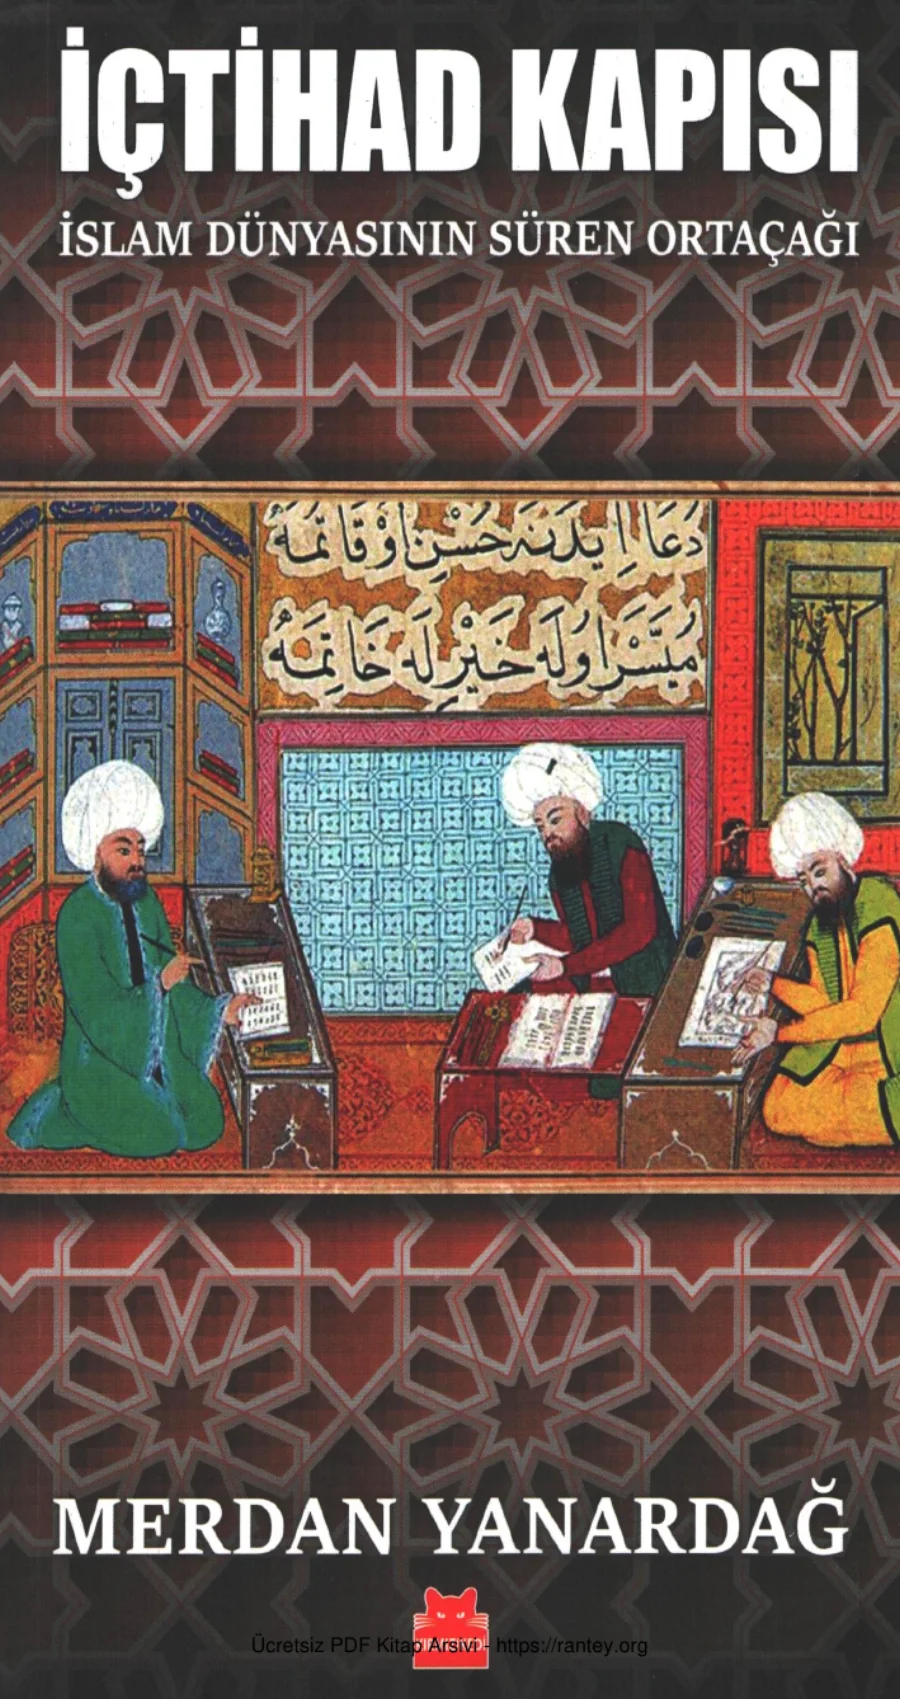 İÇTİHAD KAPISI
İSLAM DÜNYASININ SÜREN ORTAÇAĞI
دُعَا اِيدَنَهْ حُسْنِ اَوْقَاتمَهْ
مُيَسَّرْ اوُلَهْ خَيْرِلَهْ خَاتِمَهْ
MERDAN YANARDAĞ
Ücretsiz PDF Kitap Arşivi - https://rantey.org